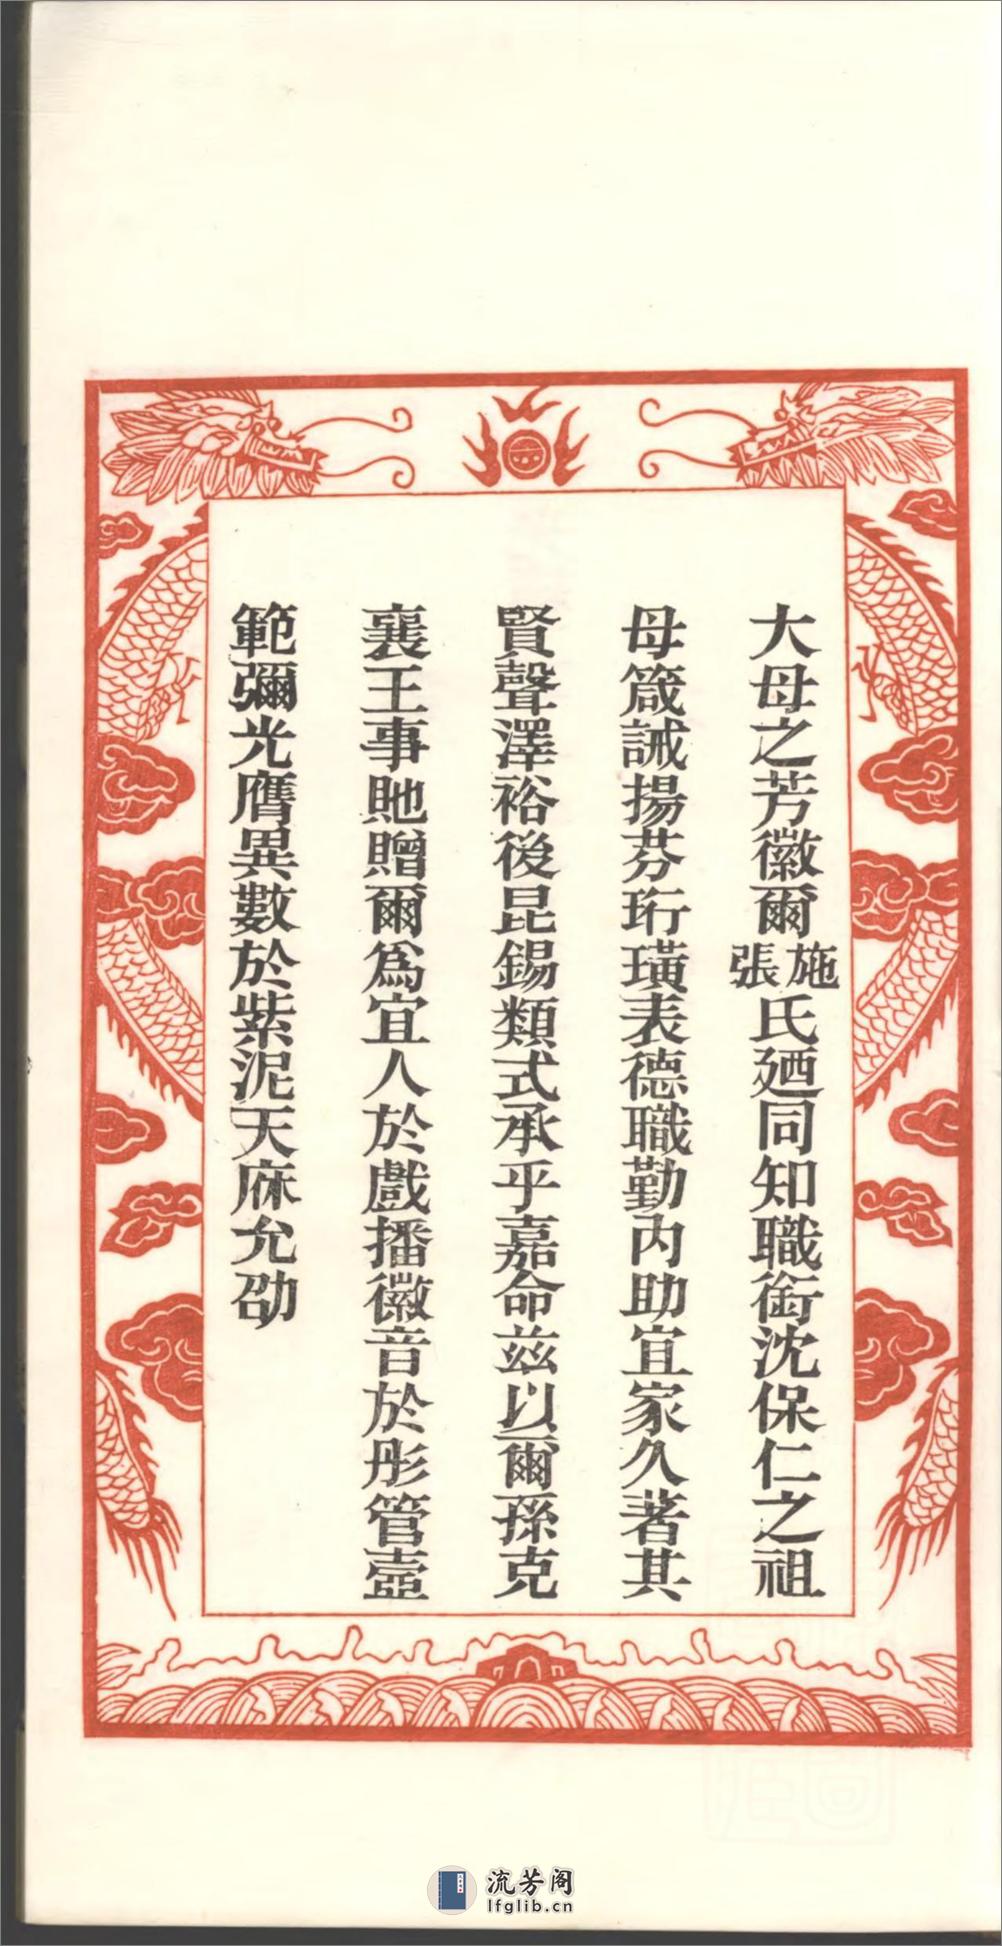 大母之芳徽爾施張氏廼同知職銜沈保仁之祖
母箴誡揚芬珩璜表德職勤內助宜家久著其
賢聲澤裕後昆錫類式承乎嘉命茲以爾孫克
襄王事貤贈爾為宜人於戲播徽音於彤管壼
範彌光膺異數於紫泥天庥允劭
流芳阁
lfglib.cn